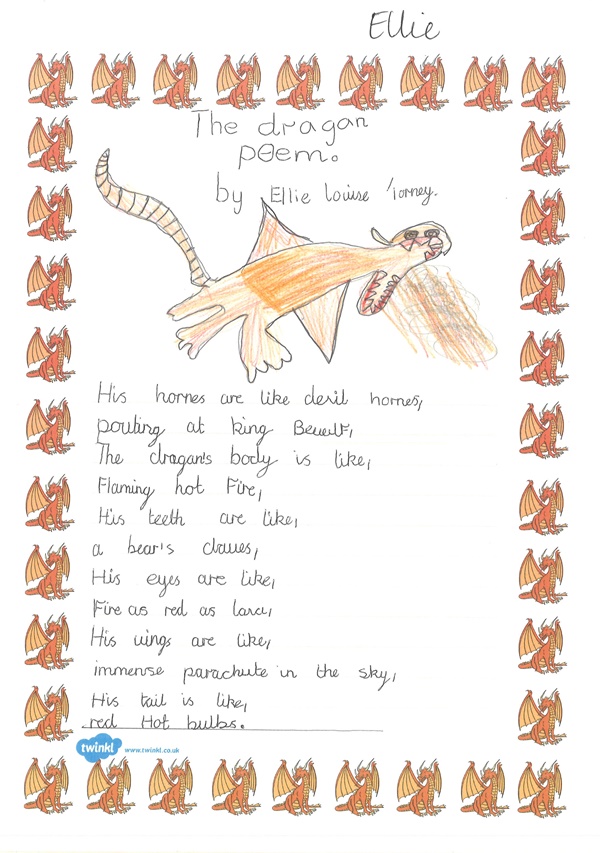 Ellie
The dragan
poem.
by Ellie Louise Torney.
His hornes are like devil hornes,
pouting at king Bewulf,
The dragan's body is like,
Flaming hot Fire,
His teeth are like,
a bear's clawes,
His eyes are like,
Fire as red as larva,
His wings are like,
immense parachute in the sky,
His tail is like,
red Hot bulbs.
twinkl www.twinkl.co.uk